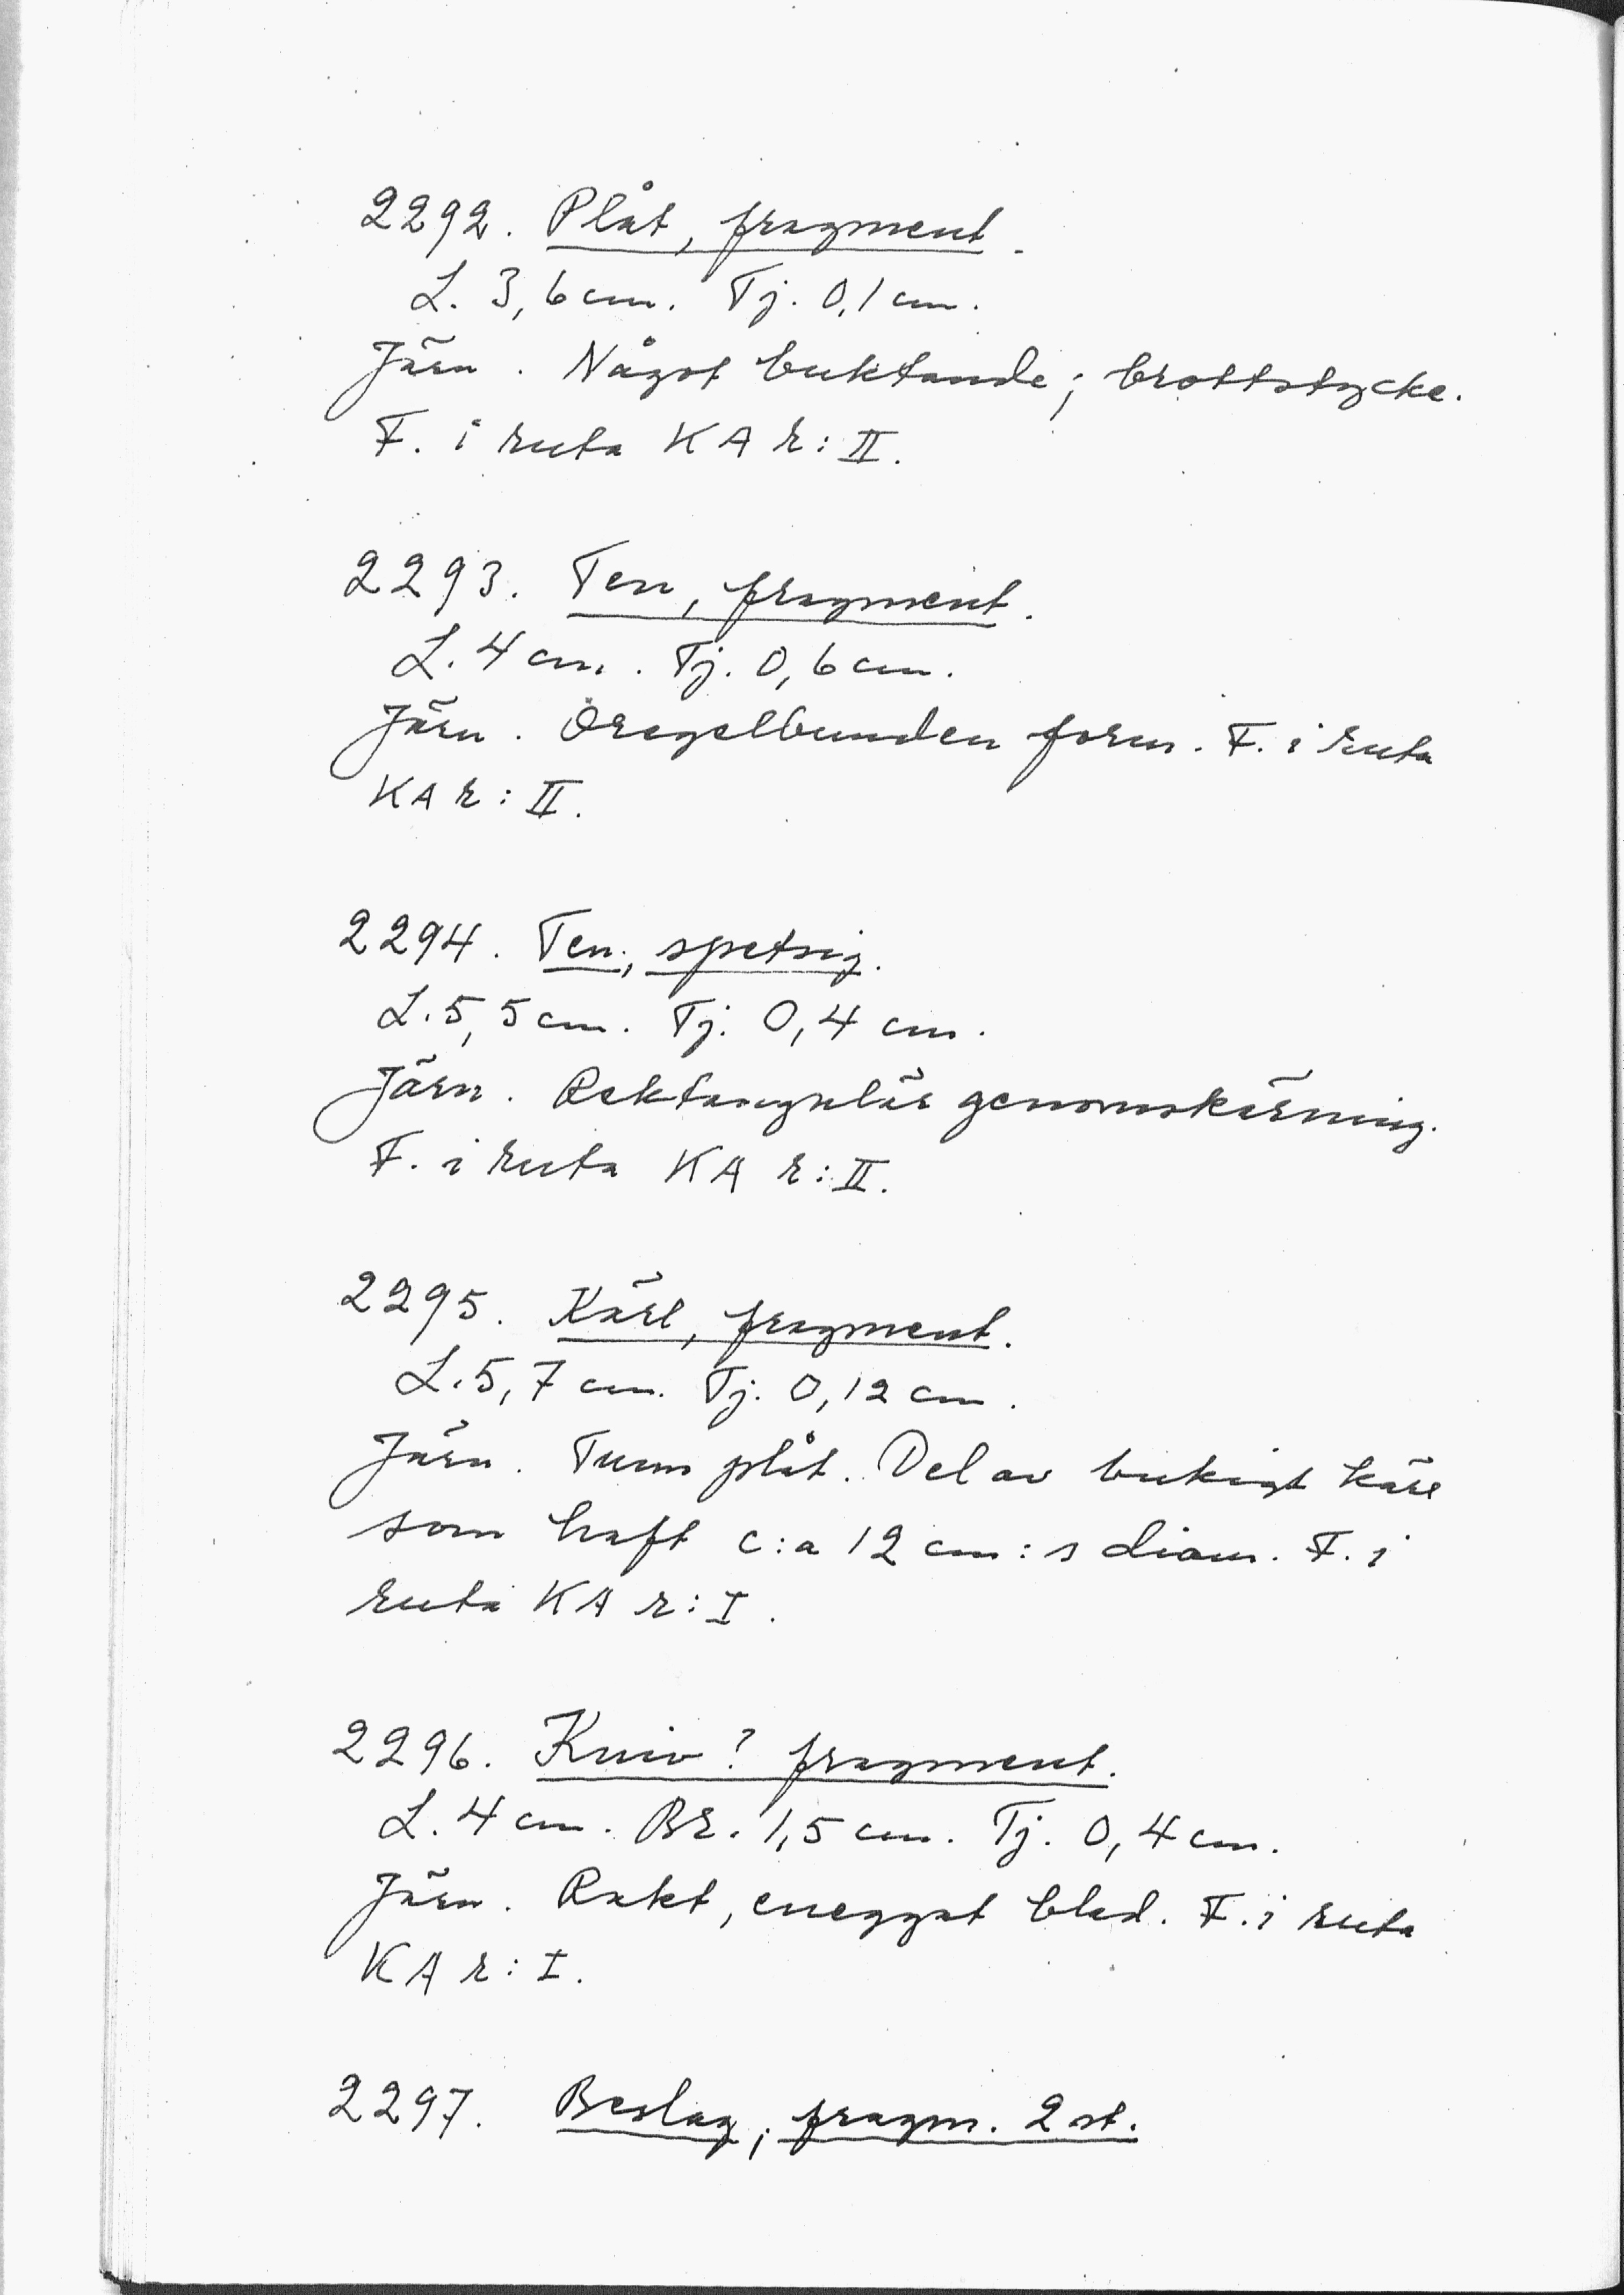 2292. Plåt, fragment.
L. 3,6 cm. Tj. 0,1 cm.
Järn. Något buktande; brottstycke.
F. i ruta KA r: II.
2293. Ten, fragment.
L. 4 cm. Tj. 0,6 cm.
Järn. Oregelbunden form. F. i ruta
KA r: II.
2294. Ten, spetsig.
L. 5,5 cm. Tj. 0,4 cm.
Järn. Rektangulär genomskärning.
F. i ruta KA r: II.
2295. Kärl, fragment.
L. 5,7 cm. Tj. 0,12 cm.
Järn. Tunn plåt. Del av bukigt kärl
som haft c:a 12 cm:s diam. F. i
ruta KA r: I.
2296. Kniv? fragment.
L. 4 cm. Br. 1,5 cm. Tj. 0,4 cm.
Järn. Rakt, eneggat blad. F. i ruta
KA r: I.
2297. Beslag, fragm. 2 st.